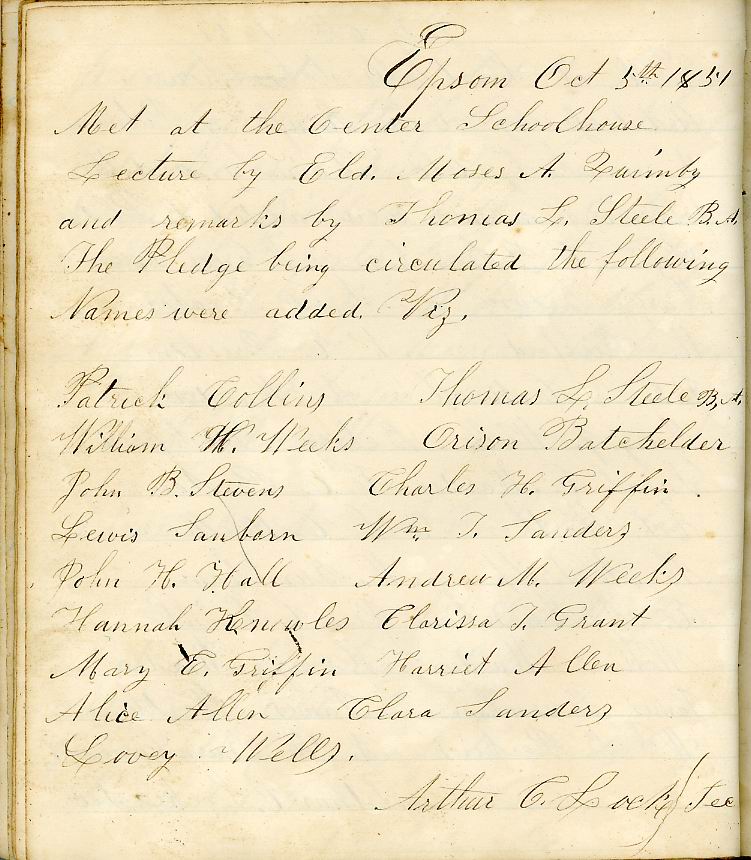 Epsom Oct 5th 1851
Met at the Center Schoolhouse
Lecture by Eld. Moses A. Quimby
and remarks by Thomas L. Steele B.A.
The Pledge being circulated the following
Names were added. Viz.
Patrick Collins Thomas L. Steele B.A.
William H. Weeks Orison Batchelder
John B. Stevens Charles H. Griffin
Lewis Sanborn Wm T. Sanders
John H. Hall Andrew M. Weeks
Hannah Knowles Clarissa T. Grant
Mary E. Griffin Harriet Allen
Alice Allen Clara Sanders
Lovey Wells.
Arthur C. Locke Sec